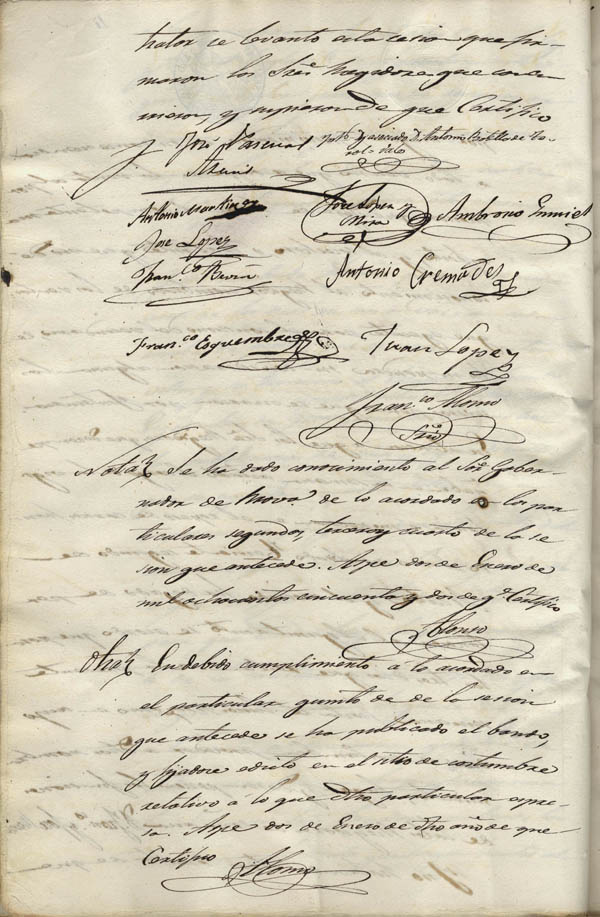 tratar se levantó esta sesion que fir-
maron los Sres. Regidores que concur-
rieron, y supieron de que Certifico
José Pascual
Antonio Botella de
Antonio Martinez
José Lopez y
Mira
Ambrosio
José Lopez
Fran.co
Antonio Cremades
Fran.co Esquembre
Juan Lopez
Fran.co Alonso
Srio
Nota Se ha dado conocimiento al Sor. Gober-
nador de Prova. de lo acordado a los par
ticulares segundo, tercero y cuarto de la se
sion que antecede. Aspe dos de Enero de
mil ochocientos cincuenta y dos de q.e Certifico
Alonso
Otra En debido cumplimiento a lo acordado en
el particular quinto de de la sesion
que antecede se ha publicado el bando,
y fijadose edicto en el sitio de costumbre
relativo a lo que dho particular espre-
sa. Aspe dos de Enero de dho año de que
Certifico
Alonso